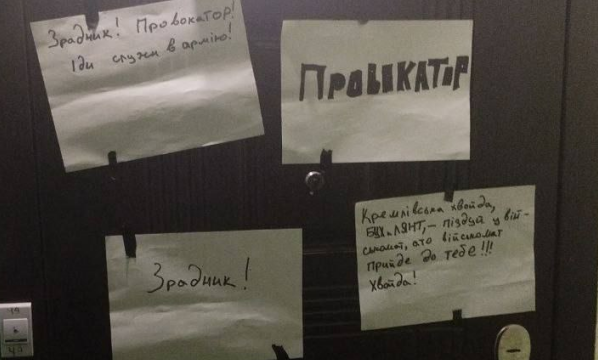 Зрадник! Провокатор!
Іди служи в армію!
ПРОВОКАТОР
Зрадник!
Кремлівська хвойда,
- піздуй у вій-
ськомат, або військомат
прийде до тебе!!!
Хвойда!